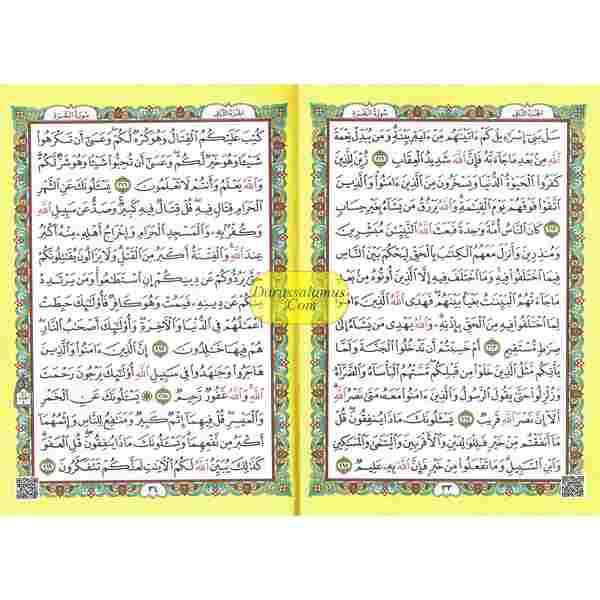 الجزء الثاني
سورة البقرة
سَلْ بَنِىٓ إِسْرَٰٓءِيلَ كَمْ ءَاتَيْنَٰهُم مِّنْ ءَايَةٍۭ بَيِّنَةٍ وَمَن يُبَدِّلْ نِعْمَةَ
ٱللَّهِ مِنۢ بَعْدِ مَا جَآءَتْهُ فَإِنَّ ٱللَّهَ شَدِيدُ ٱلْعِقَابِ ٢١١ زُيِّنَ لِلَّذِينَ
كَفَرُوا۟ ٱلْحَيَوٰةُ ٱلدُّنْيَا وَيَسْخَرُونَ مِنَ ٱلَّذِينَ ءَامَنُوا۟ وَٱلَّذِينَ
ٱتَّقَوْا۟ فَوْقَهُمْ يَوْمَ ٱلْقِيَٰمَةِ وَٱللَّهُ يَرْزُقُ مَن يَشَآءُ بِغَيْرِ حِسَابٍ
٢١٢ كَانَ ٱلنَّاسُ أُمَّةً وَٰحِدَةً فَبَعَثَ ٱللَّهُ ٱلنَّبِيِّـۧنَ مُبَشِّرِينَ
وَمُنذِرِينَ وَأَنزَلَ مَعَهُمُ ٱلْكِتَٰبَ بِٱلْحَقِّ لِيَحْكُمَ بَيْنَ ٱلنَّاسِ
فِيمَا ٱخْتَلَفُوا۟ فِيهِ وَمَا ٱخْتَلَفَ فِيهِ إِلَّا ٱلَّذِينَ أُوتُوهُ مِنۢ بَعْدِ
مَا جَآءَتْهُمُ ٱلْبَيِّنَٰتُ بَغْيًۢا بَيْنَهُمْ فَهَدَى ٱللَّهُ ٱلَّذِينَ ءَامَنُوا۟
لِمَا ٱخْتَلَفُوا۟ فِيهِ مِنَ ٱلْحَقِّ بِإِذْنِهِۦ وَٱللَّهُ يَهْدِى مَن يَشَآءُ إِلَىٰ
صِرَٰطٍ مُّسْتَقِيمٍ ٢١٣ أَمْ حَسِبْتُمْ أَن تَدْخُلُوا۟ ٱلْجَنَّةَ وَلَمَّا
يَأْتِكُم مَّثَلُ ٱلَّذِينَ خَلَوْا۟ مِن قَبْلِكُم مَّسَّتْهُمُ ٱلْبَأْسَآءُ وَٱلضَّرَّآءُ
وَزُلْزِلُوا۟ حَتَّىٰ يَقُولَ ٱلرَّسُولُ وَٱلَّذِينَ ءَامَنُوا۟ مَعَهُۥ مَتَىٰ نَصْرُ ٱللَّهِ
أَلَآ إِنَّ نَصْرَ ٱللَّهِ قَرِيبٌ ٢١٤ يَسْـَٔلُونَكَ مَاذَا يُنفِقُونَ قُلْ
مَآ أَنفَقْتُم مِّنْ خَيْرٍ فَلِلْوَٰلِدَيْنِ وَٱلْأَقْرَبِينَ وَٱلْيَتَٰمَىٰ وَٱلْمَسَٰكِينِ
وَٱبْنِ ٱلسَّبِيلِ وَمَا تَفْعَلُوا۟ مِنْ خَيْرٍ فَإِنَّ ٱللَّهَ بِهِۦ عَلِيمٌ ٢١٥
٣٣
الجزء الثاني
سورة البقرة
كُتِبَ عَلَيْكُمُ ٱلْقِتَالُ وَهُوَ كُرْهٌ لَّكُمْ وَعَسَىٰٓ أَن تَكْرَهُوا۟
شَيْـًٔا وَهُوَ خَيْرٌ لَّكُمْ وَعَسَىٰٓ أَن تُحِبُّوا۟ شَيْـًٔا وَهُوَ شَرٌّ لَّكُمْ
وَٱللَّهُ يَعْلَمُ وَأَنتُمْ لَا تَعْلَمُونَ ٢١٦ يَسْـَٔلُونَكَ عَنِ ٱلشَّهْرِ
ٱلْحَرَامِ قِتَالٍ فِيهِ قُلْ قِتَالٌ فِيهِ كَبِيرٌ وَصَدٌّ عَن سَبِيلِ ٱللَّهِ
وَكُفْرٌۢ بِهِۦ وَٱلْمَسْجِدِ ٱلْحَرَامِ وَإِخْرَاجُ أَهْلِهِۦ مِنْهُ أَكْبَرُ
عِندَ ٱللَّهِ وَٱلْفِتْنَةُ أَكْبَرُ مِنَ ٱلْقَتْلِ وَلَا يَزَالُونَ يُقَٰتِلُونَكُمْ
حَتَّىٰ يَرُدُّوكُمْ عَن دِينِكُمْ إِنِ ٱسْتَطَٰعُوا۟ وَمَن يَرْتَدِدْ
مِنكُمْ عَن دِينِهِۦ فَيَمُتْ وَهُوَ كَافِرٌ فَأُو۟لَٰٓئِكَ حَبِطَتْ
أَعْمَٰلُهُمْ فِى ٱلدُّنْيَا وَٱلْءَاخِرَةِ وَأُو۟لَٰٓئِكَ أَصْحَٰبُ ٱلنَّارِ
هُمْ فِيهَا خَٰلِدُونَ ٢١٧ إِنَّ ٱلَّذِينَ ءَامَنُوا۟ وَٱلَّذِينَ
هَاجَرُوا۟ وَجَٰهَدُوا۟ فِى سَبِيلِ ٱللَّهِ أُو۟لَٰٓئِكَ يَرْجُونَ رَحْمَتَ
ٱللَّهِ وَٱللَّهُ غَفُورٌ رَّحِيمٌ ٢١٨ ۞ يَسْـَٔلُونَكَ عَنِ ٱلْخَمْرِ
وَٱلْمَيْسِرِ قُلْ فِيهِمَآ إِثْمٌ كَبِيرٌ وَمَنَٰفِعُ لِلنَّاسِ وَإِثْمُهُمَآ
أَكْبَرُ مِن نَّفْعِهِمَا وَيَسْـَٔلُونَكَ مَاذَا يُنفِقُونَ قُلِ ٱلْعَفْوَ
كَذَٰلِكَ يُبَيِّنُ ٱللَّهُ لَكُمُ ٱلْءَايَٰتِ لَعَلَّكُمْ تَتَفَكَّرُونَ ٢١٩
٣٤
Darussalamus
.Com